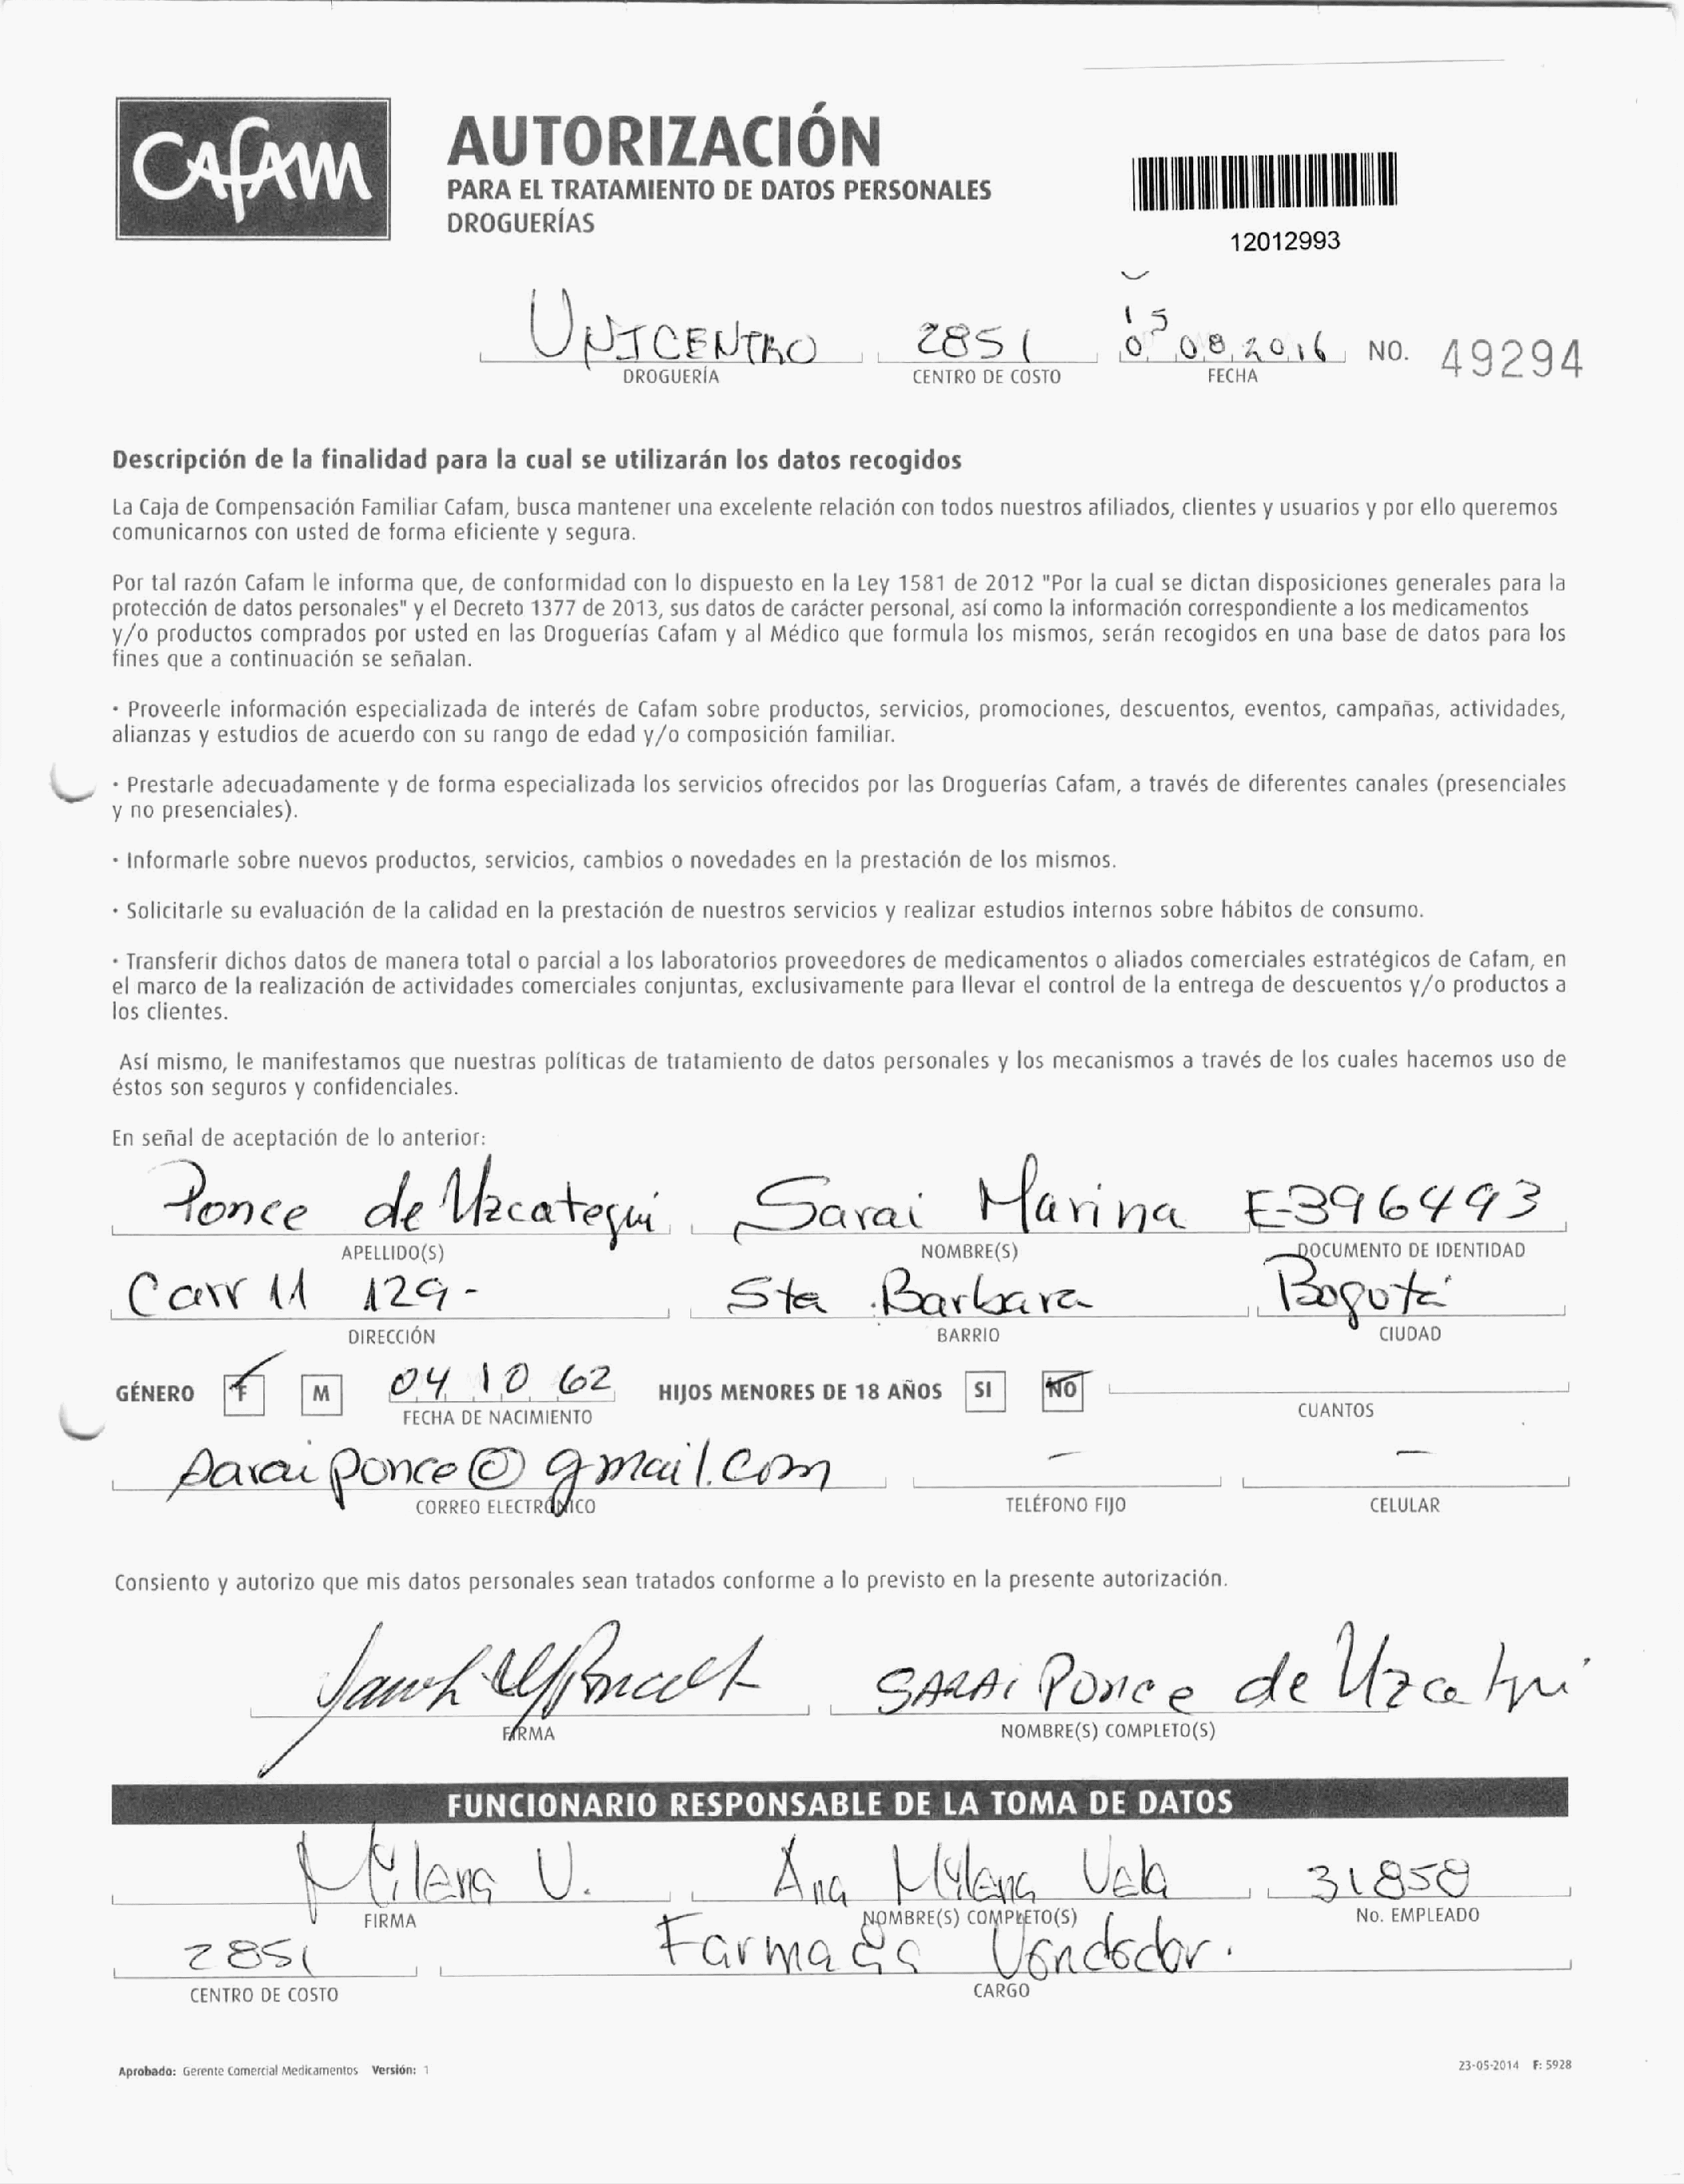 CAFAM
AUTORIZACIÓN
PARA EL TRATAMIENTO DE DATOS PERSONALES
DROGUERÍAS
12012993
UNICENTRO 2851 15 08 2016 NO. 49294
DROGUERÍA CENTRO DE COSTO FECHA
Descripción de la finalidad para la cual se utilizarán los datos recogidos
La Caja de Compensación Familiar Cafam, busca mantener una excelente relación con todos nuestros afiliados, clientes y usuarios y por ello queremos
comunicarnos con usted de forma eficiente y segura.
Por tal razón Cafam le informa que, de conformidad con lo dispuesto en la Ley 1581 de 2012 "Por la cual se dictan disposiciones generales para la
protección de datos personales" y el Decreto 1377 de 2013, sus datos de carácter personal, así como la información correspondiente a los medicamentos
y/o productos comprados por usted en las Droguerías Cafam y al Médico que formula los mismos, serán recogidos en una base de datos para los
fines que a continuación se señalan.
· Proveerle información especializada de interés de Cafam sobre productos, servicios, promociones, descuentos, eventos, campañas, actividades,
alianzas y estudios de acuerdo con su rango de edad y/o composición familiar.
· Prestarle adecuadamente y de forma especializada los servicios ofrecidos por las Droguerías Cafam, a través de diferentes canales (presenciales
y no presenciales).
· Informarle sobre nuevos productos, servicios, cambios o novedades en la prestación de los mismos.
· Solicitarle su evaluación de la calidad en la prestación de nuestros servicios y realizar estudios internos sobre hábitos de consumo.
· Transferir dichos datos de manera total o parcial a los laboratorios proveedores de medicamentos o aliados comerciales estratégicos de Cafam, en
el marco de la realización de actividades comerciales conjuntas, exclusivamente para llevar el control de la entrega de descuentos y/o productos a
los clientes.
Así mismo, le manifestamos que nuestras políticas de tratamiento de datos personales y los mecanismos a través de los cuales hacemos uso de
éstos son seguros y confidenciales.
En señal de aceptación de lo anterior:
Ponce de Uzcategui Sarai Marina E-396493
APELLIDO(S) NOMBRE(S) DOCUMENTO DE IDENTIDAD
Carr 11 129- Sta Barbara Bogotá
DIRECCIÓN BARRIO CIUDAD
GÉNERO F M 04 10 62 HIJOS MENORES DE 18 AÑOS SI NO
FECHA DE NACIMIENTO CUANTOS
saraiponce@gmail.com - -
CORREO ELECTRÓNICO TELÉFONO FIJO CELULAR
Consiento y autorizo que mis datos personales sean tratados conforme a lo previsto en la presente autorización.
SARAi Ponce de Uzcategui
FIRMA NOMBRE(S) COMPLETO(S)
FUNCIONARIO RESPONSABLE DE LA TOMA DE DATOS
Milena V. Ana Milena Vela 31858
FIRMA NOMBRE(S) COMPLETO(S) No. EMPLEADO
2851 Vendedor.
CENTRO DE COSTO CARGO
Aprobado: Gerente Comercial Medicamentos Versión: 1 23-05-2014 F: 5928